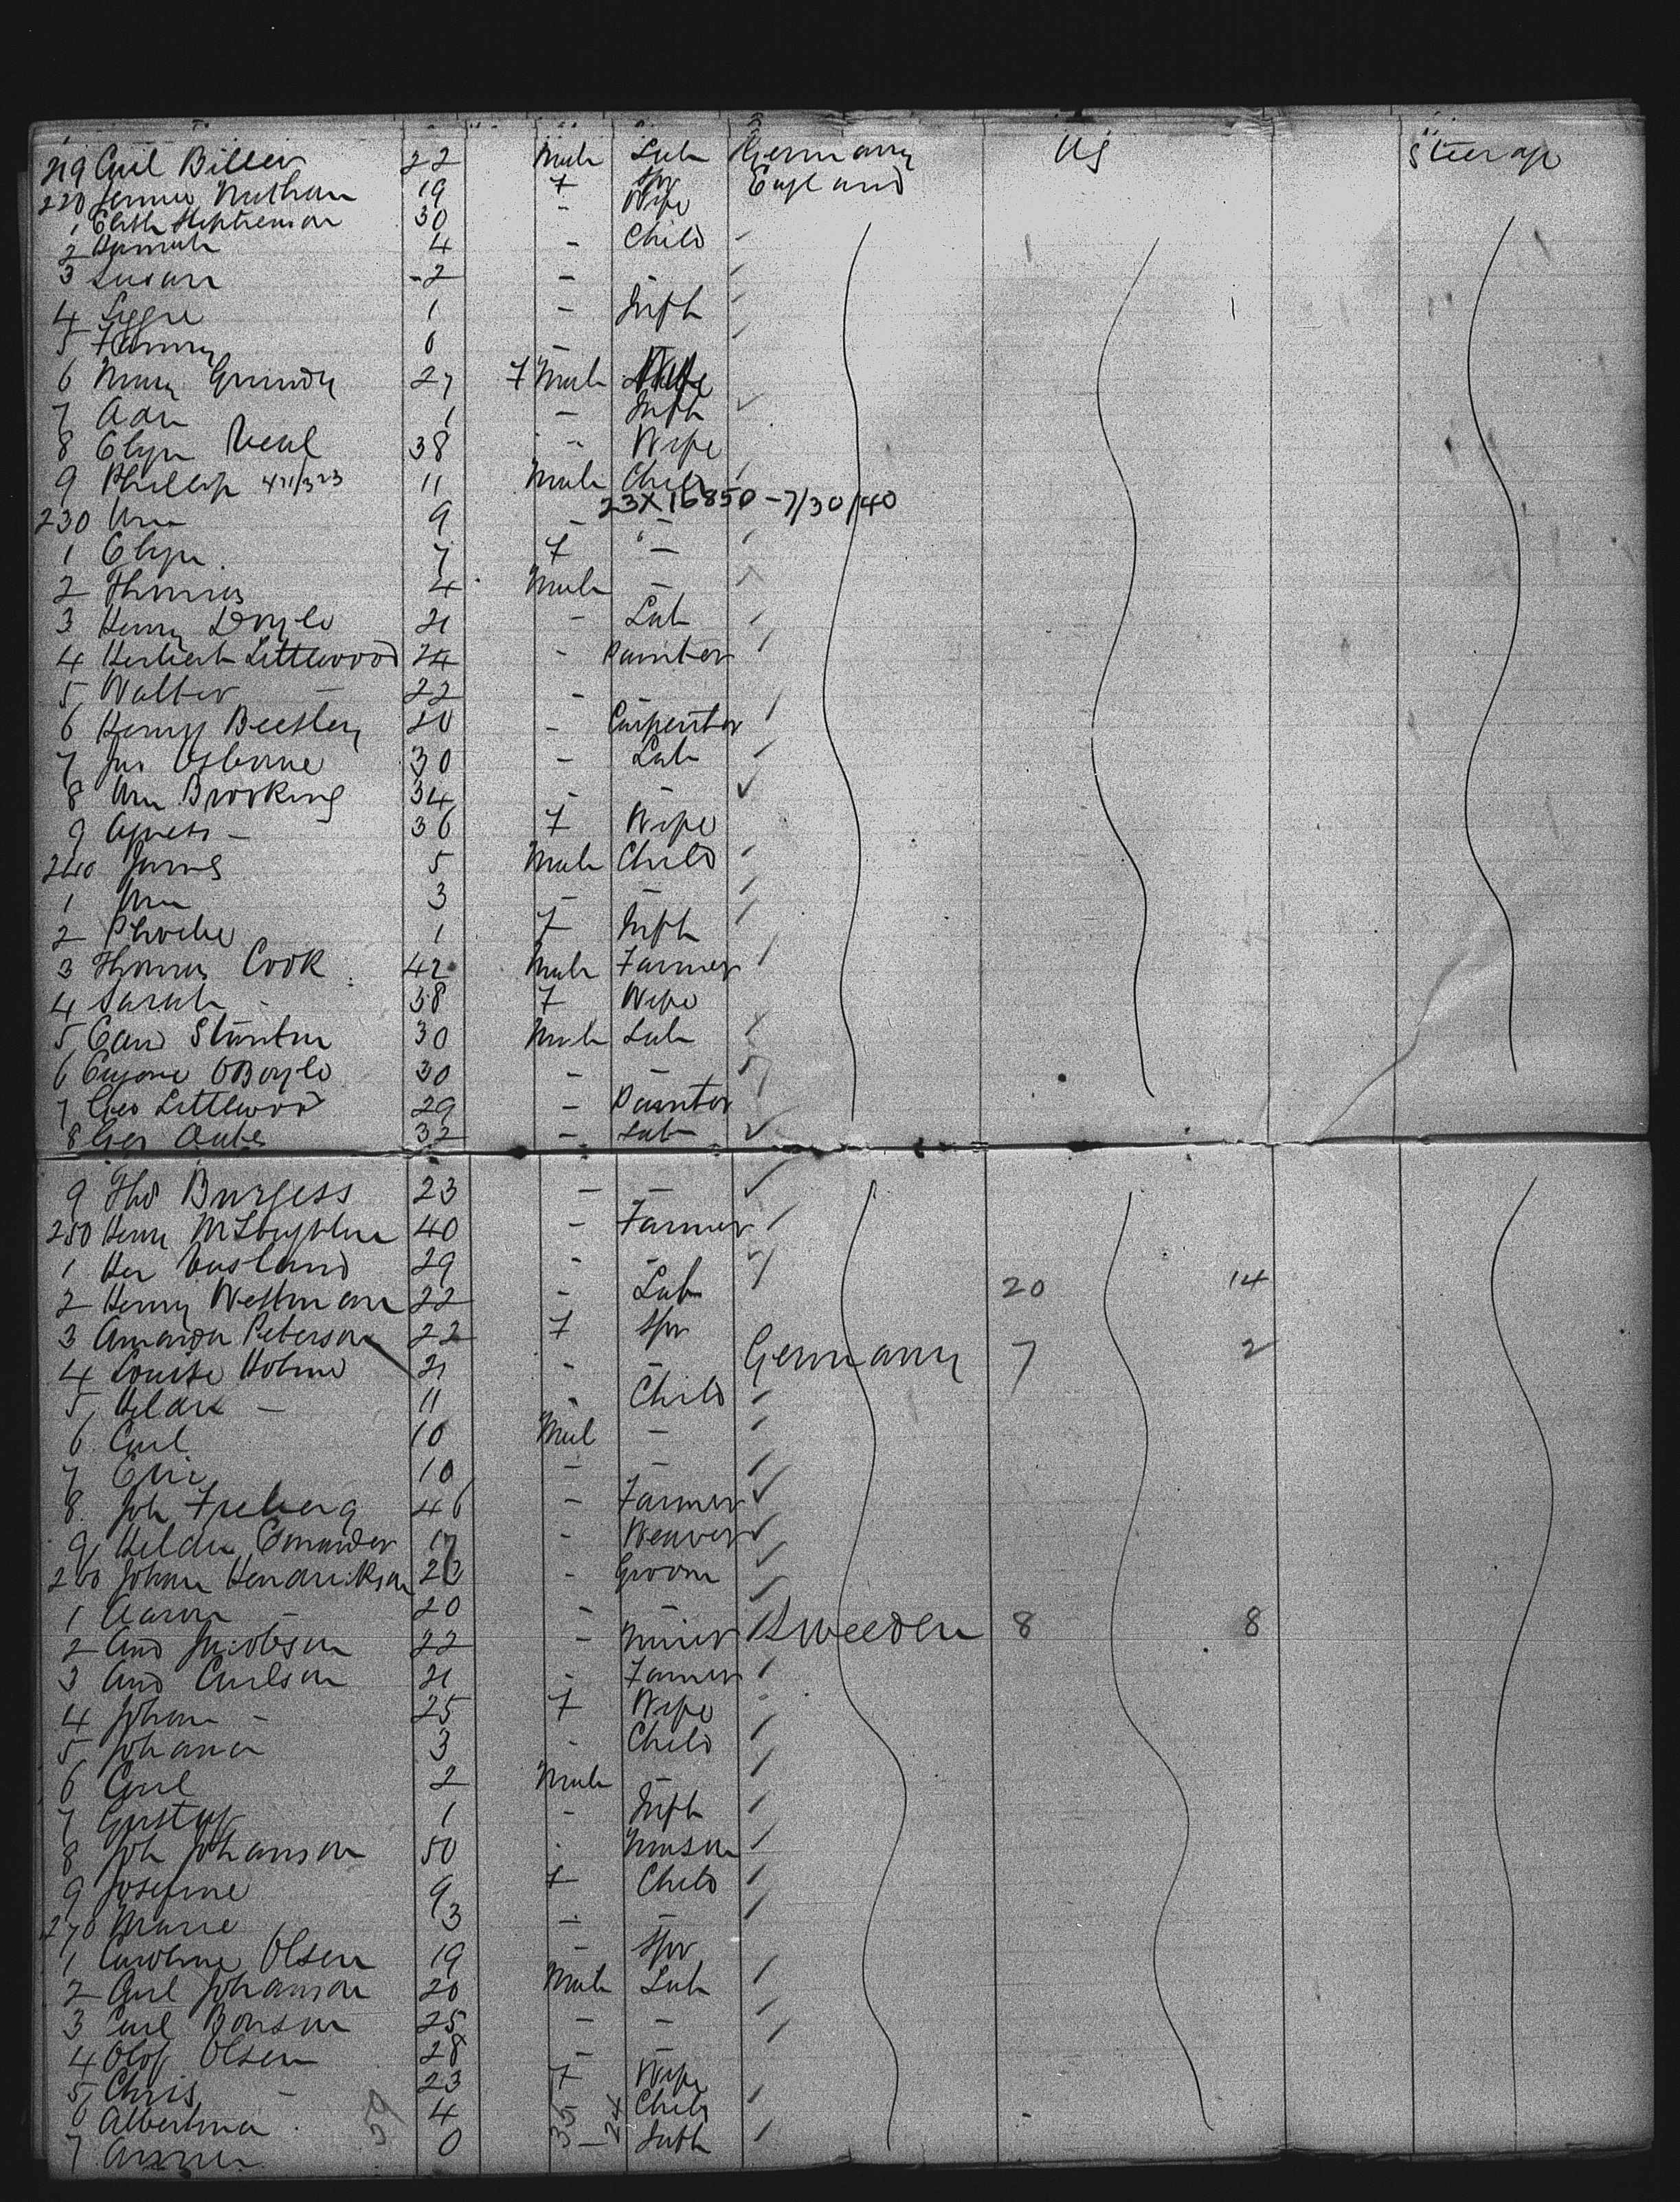 219 Carl Biller 22 Male Lab Germany US Steerage
220 Jennie Nathan 19 F Spr England
1 Elizth Stephenson 30 - Wife
2 Hannah 4 - Child
3 Susan 2 - -
4 Lizzie 1 - Inft
5 Fanny 0 - -
6 Mary Grundy 27 F Male Wife
7 Ada 1 - Inft
8 Elizn Veal 38 - Wife
9 Phillip 471/323 11 Male Child
23X16850 - 7/30/40
230 Wm 9 - -
1 Elizn 7 F -
2 Thomas 4 Male -
3 Henry Doyle 21 - Lab
4 Herbert Littlewood 24 - Painter
5 Walter - 22 -
6 Henry Beesley 20 - Carpenter
7 Jas Osborne 30 - Lab
8 Wm Brooking 34 - -
9 Agness - 36 F Wife
240 James 5 Male Child
1 Wm 3 - -
2 Phoebe 1 F Inft
3 Thomas Cook 42 Male Farmer
4 Sarah - 38 F Wife
5 Edwd Stanton 30 Male Lab
6 Eugene OBoyle 30 - -
7 Geo Littlewood 29 - Painter
8 Geo Oates 32 - Lab
9 Thos Burgess 23 - -
250 Henry McLoughlin 40 - Farmer
1 Her Vasland 29 -
2 Henry Westman 22 - Lab 20 14
3 Amanda Peterson 22 F Spr
4 Louise Holme 21 - - Germany 7 2
5 Hilda - 11 - Child
6 Carl 10 Mal -
7 Eric 10 - -
8 Joh Freberg 46 - Farmer
9 Hilda 17 - Weaver
260 Johan Hendrikson 23 - Groom
1 Aaron - 20 - -
2 And Jacobson 22 - Miner Sweeden 8 8
3 And Carlson 21 - Farmer
4 Johan - 25 F Wife
5 Johana 3 - Child
6 Carl 2 Male -
7 Gustaf 1 - Inft
8 Joh Johanson 50 Mason
9 Josefine 9 F Child
270 Marie 3 - -
1 Caroline Olsen 19 - Spr
2 Carl Johanson 20 Male Lab
3 Carl Bonson 25 - -
4 Olof Olsen 28 - -
5 Chris - 23 F Wife
6 Albertina 4 Child
7 Anna 0 Inft
59 35 - 24